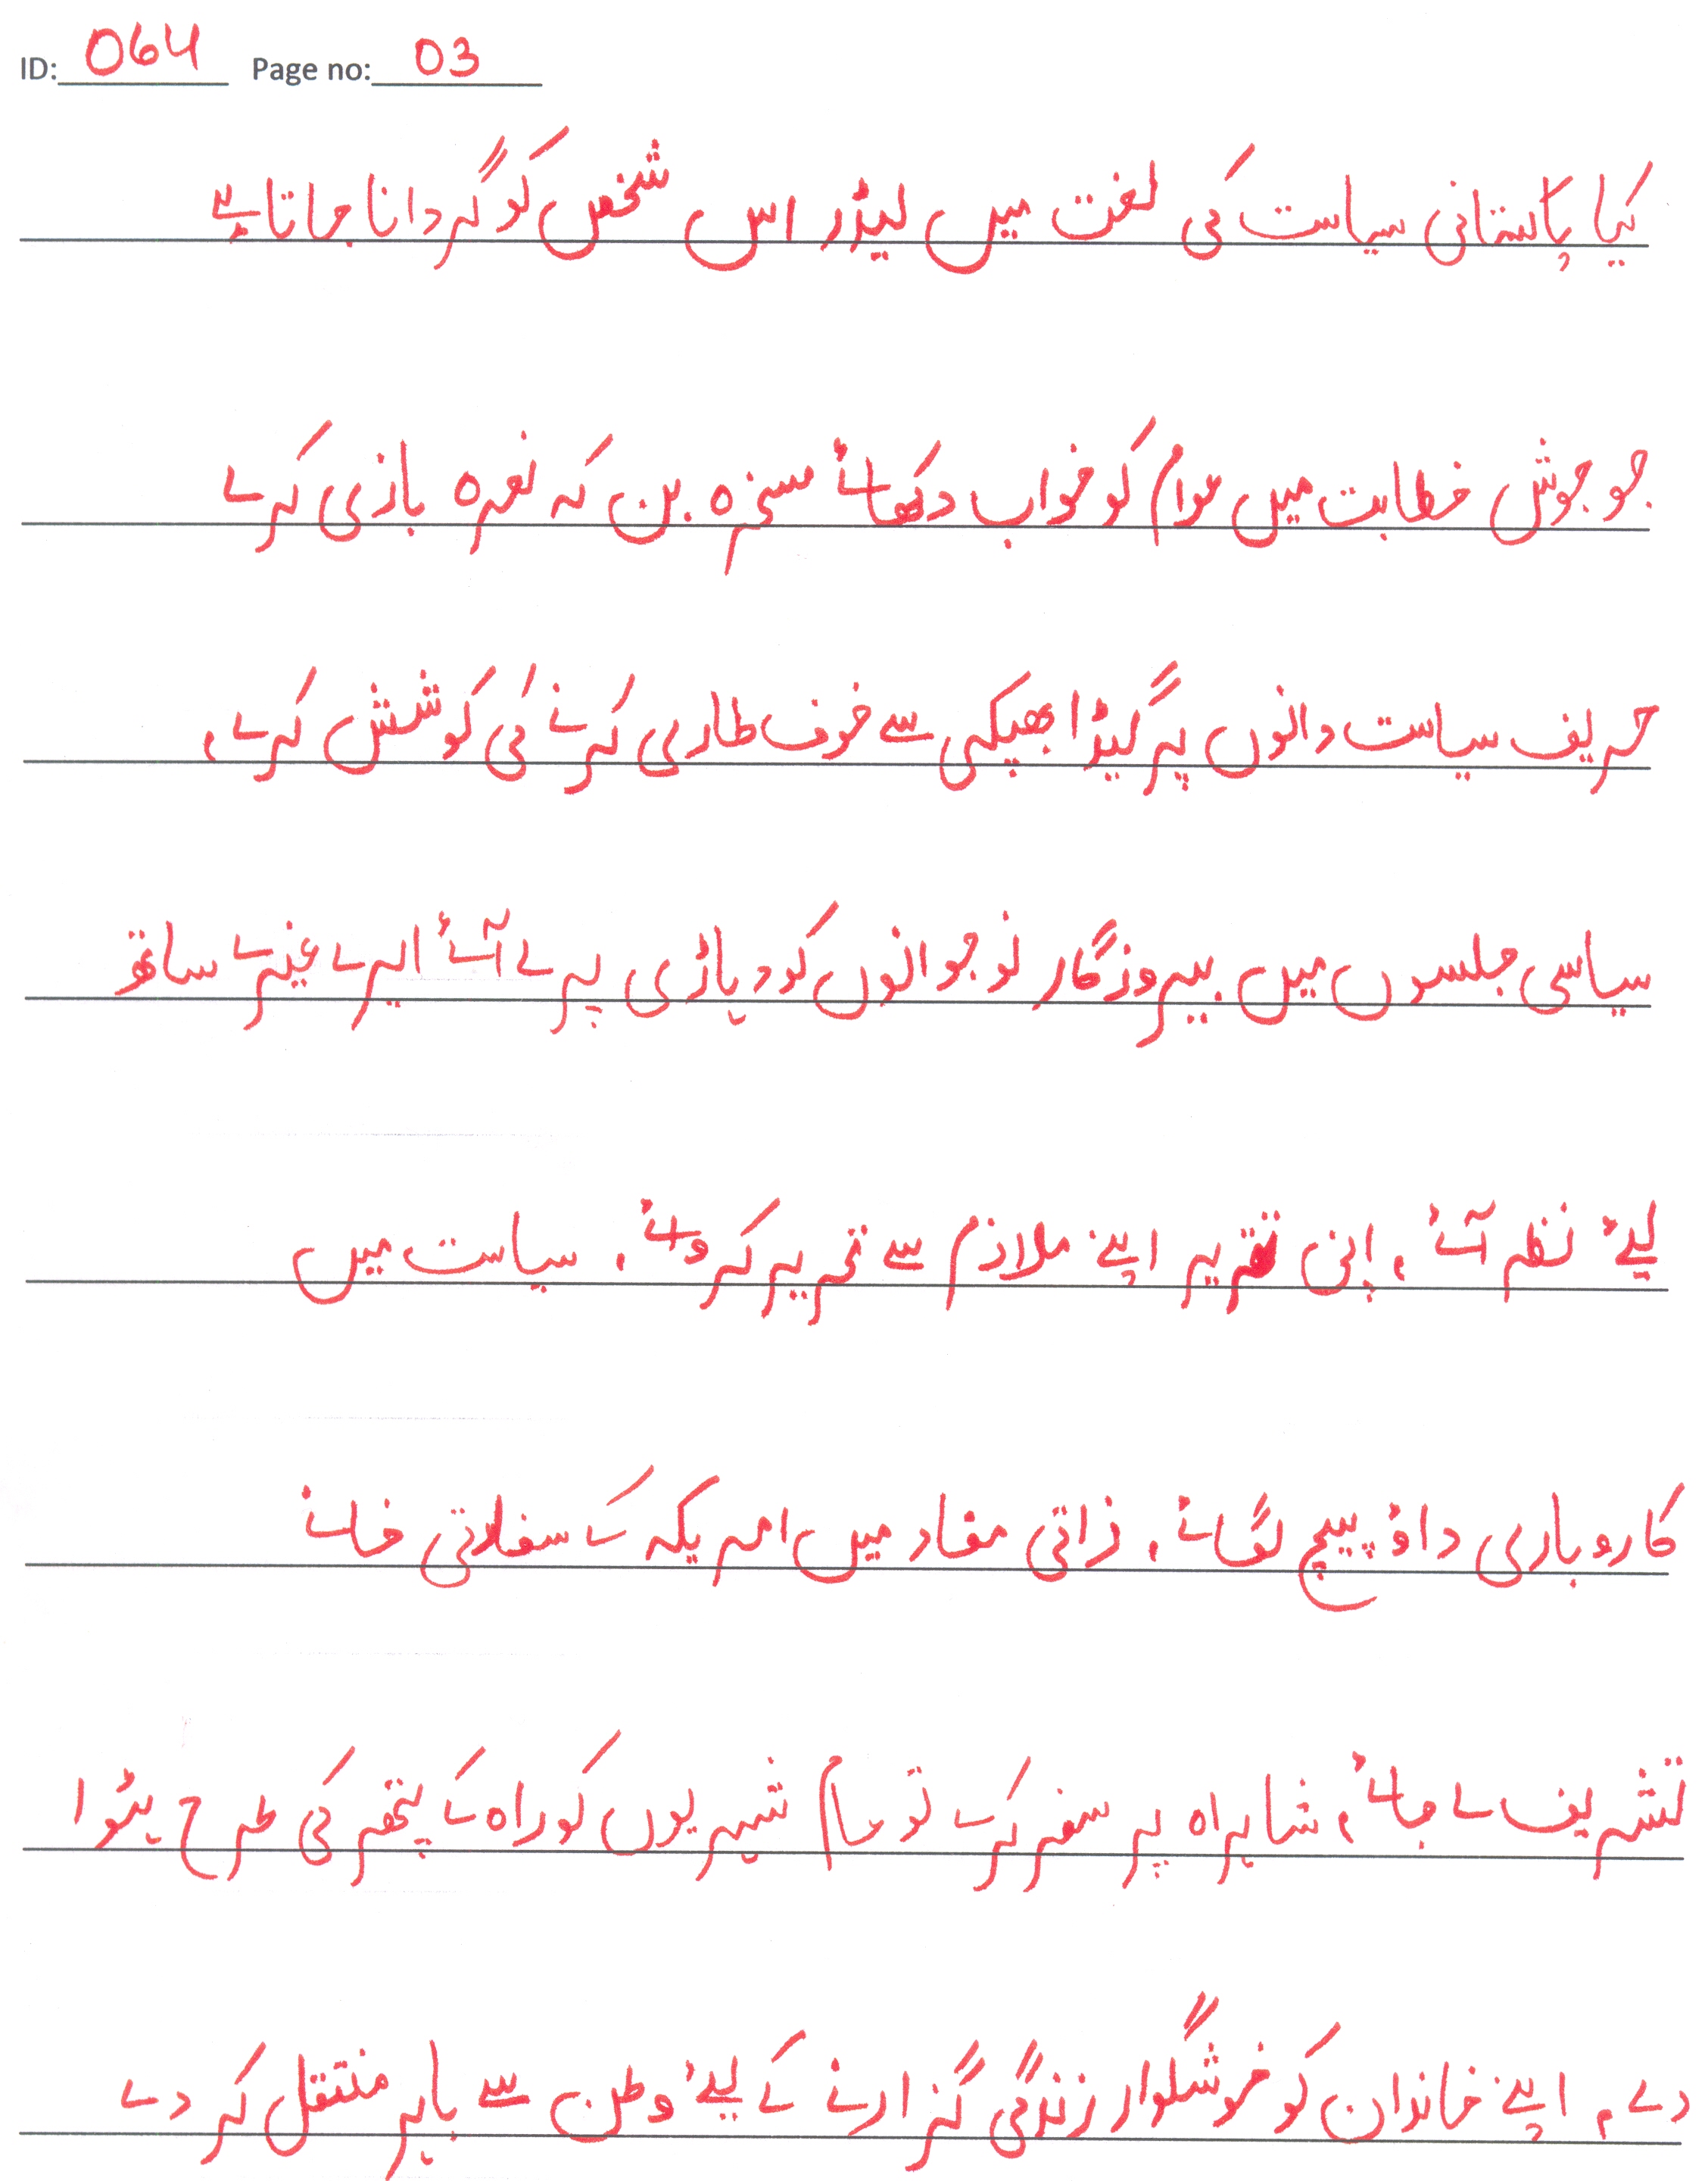 ID: 064 Page no: 03
کیا پاکستانی سیاست کی لغت میں لیڈر اس شخص کو گردانا جاتا ہے
جو جوش خطابت میں عوام کو خواب دکھائے مسخرہ بن کر نعرہ بازی کرے
حریف سیاست دانوں پر گیڈا بھبکی سے خوف طاری کرنے کی کوشش کرے ،
سیاسی جلسوں میں بیروزگار نوجوانوں کو دہاڑی پر لے آئے ایرے غیرے ساتھ
لیئے نظر آئے ، اپنی تقریر اپنے ملازم سے تحریر کروائے ، سیاست میں
کاروباری داؤ پیچ لگائے ، ذاتی مفاد میں امریکہ کے سفارتی خانے
تشریف لے جائے ، شاہراہ پر سفر کرے تو عام شہریوں کو راہ کے پتھر کی طرح ہٹوا
دے ، اپنے خاندان کو خوشگوار زندگی گزارنے کے لیئے وطن سے باہر منتقل کر دے